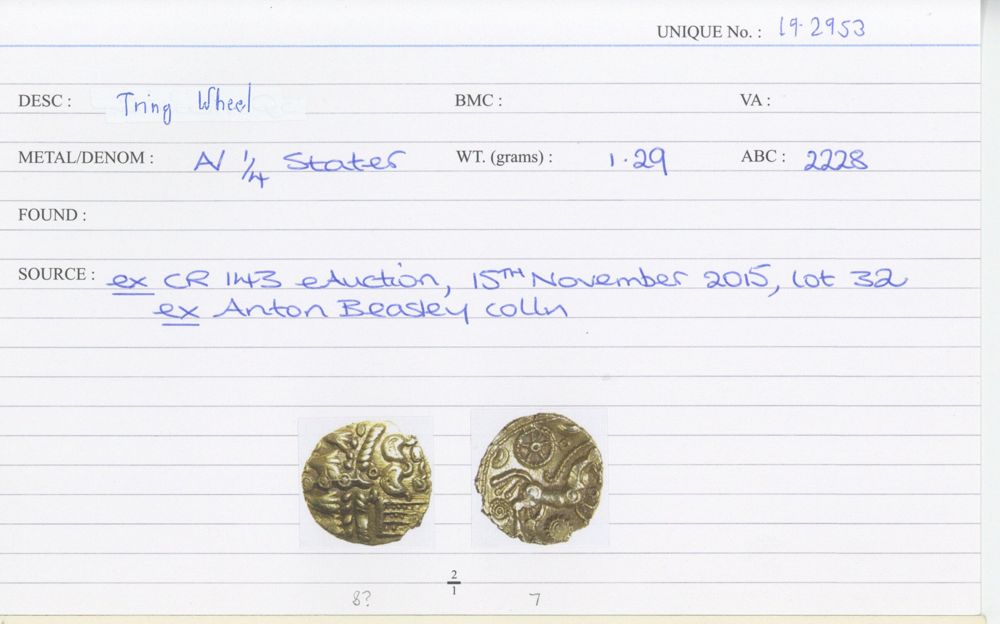 UNIQUE No. : 19-2953
DESC : Tring Wheel BMC : VA :
METAL/DENOM : A/ 1/4 Stater WT. (grams) : 1.29 ABC : 2228
FOUND :
SOURCE : ex CR 143 eAuction, 15TH November 2015, lot 32
ex Anton Beasley colln
2/1
8? 7